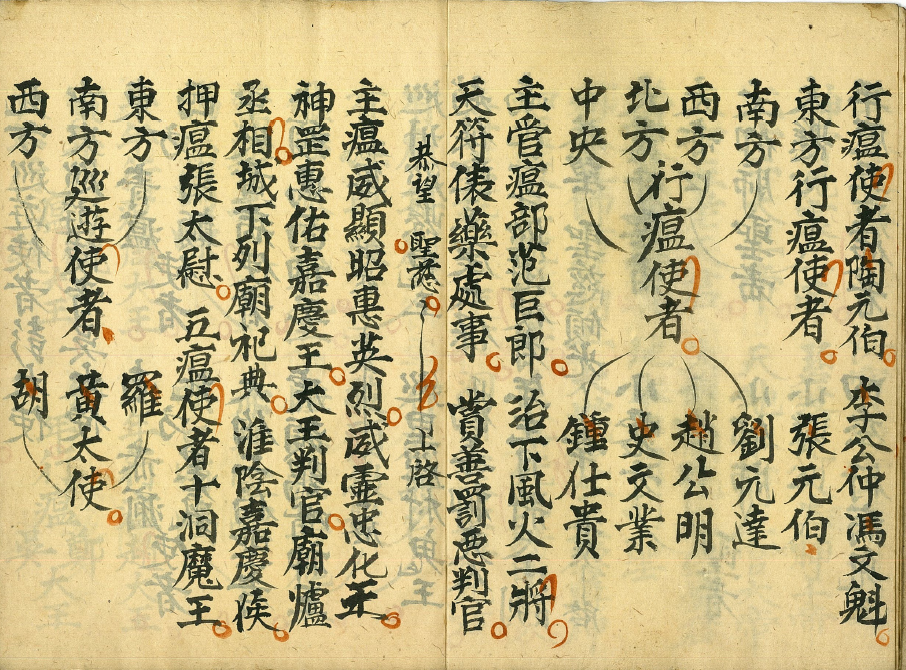 行瘟使者陶元伯 李公仲 馮文魁
東方行瘟使者 張元伯
南方 劉元達
西方 趙公明
行瘟使者
北方 史文業
中央 鍾仕貴
主管瘟部范巨郎 治下風火二將
天符俵藥處事 賞善罰惡判官
恭望 聖慈 上啓
主瘟威顯昭惠英烈威靈忠化王
神罡惠佑嘉慶王 大王判官廟爐
丞相城下列廟祀典 淮陰嘉慶侯
押瘟張太尉 五瘟使者十洞魔王
東方 羅
南方巡遊使者 黃太使
西方 胡